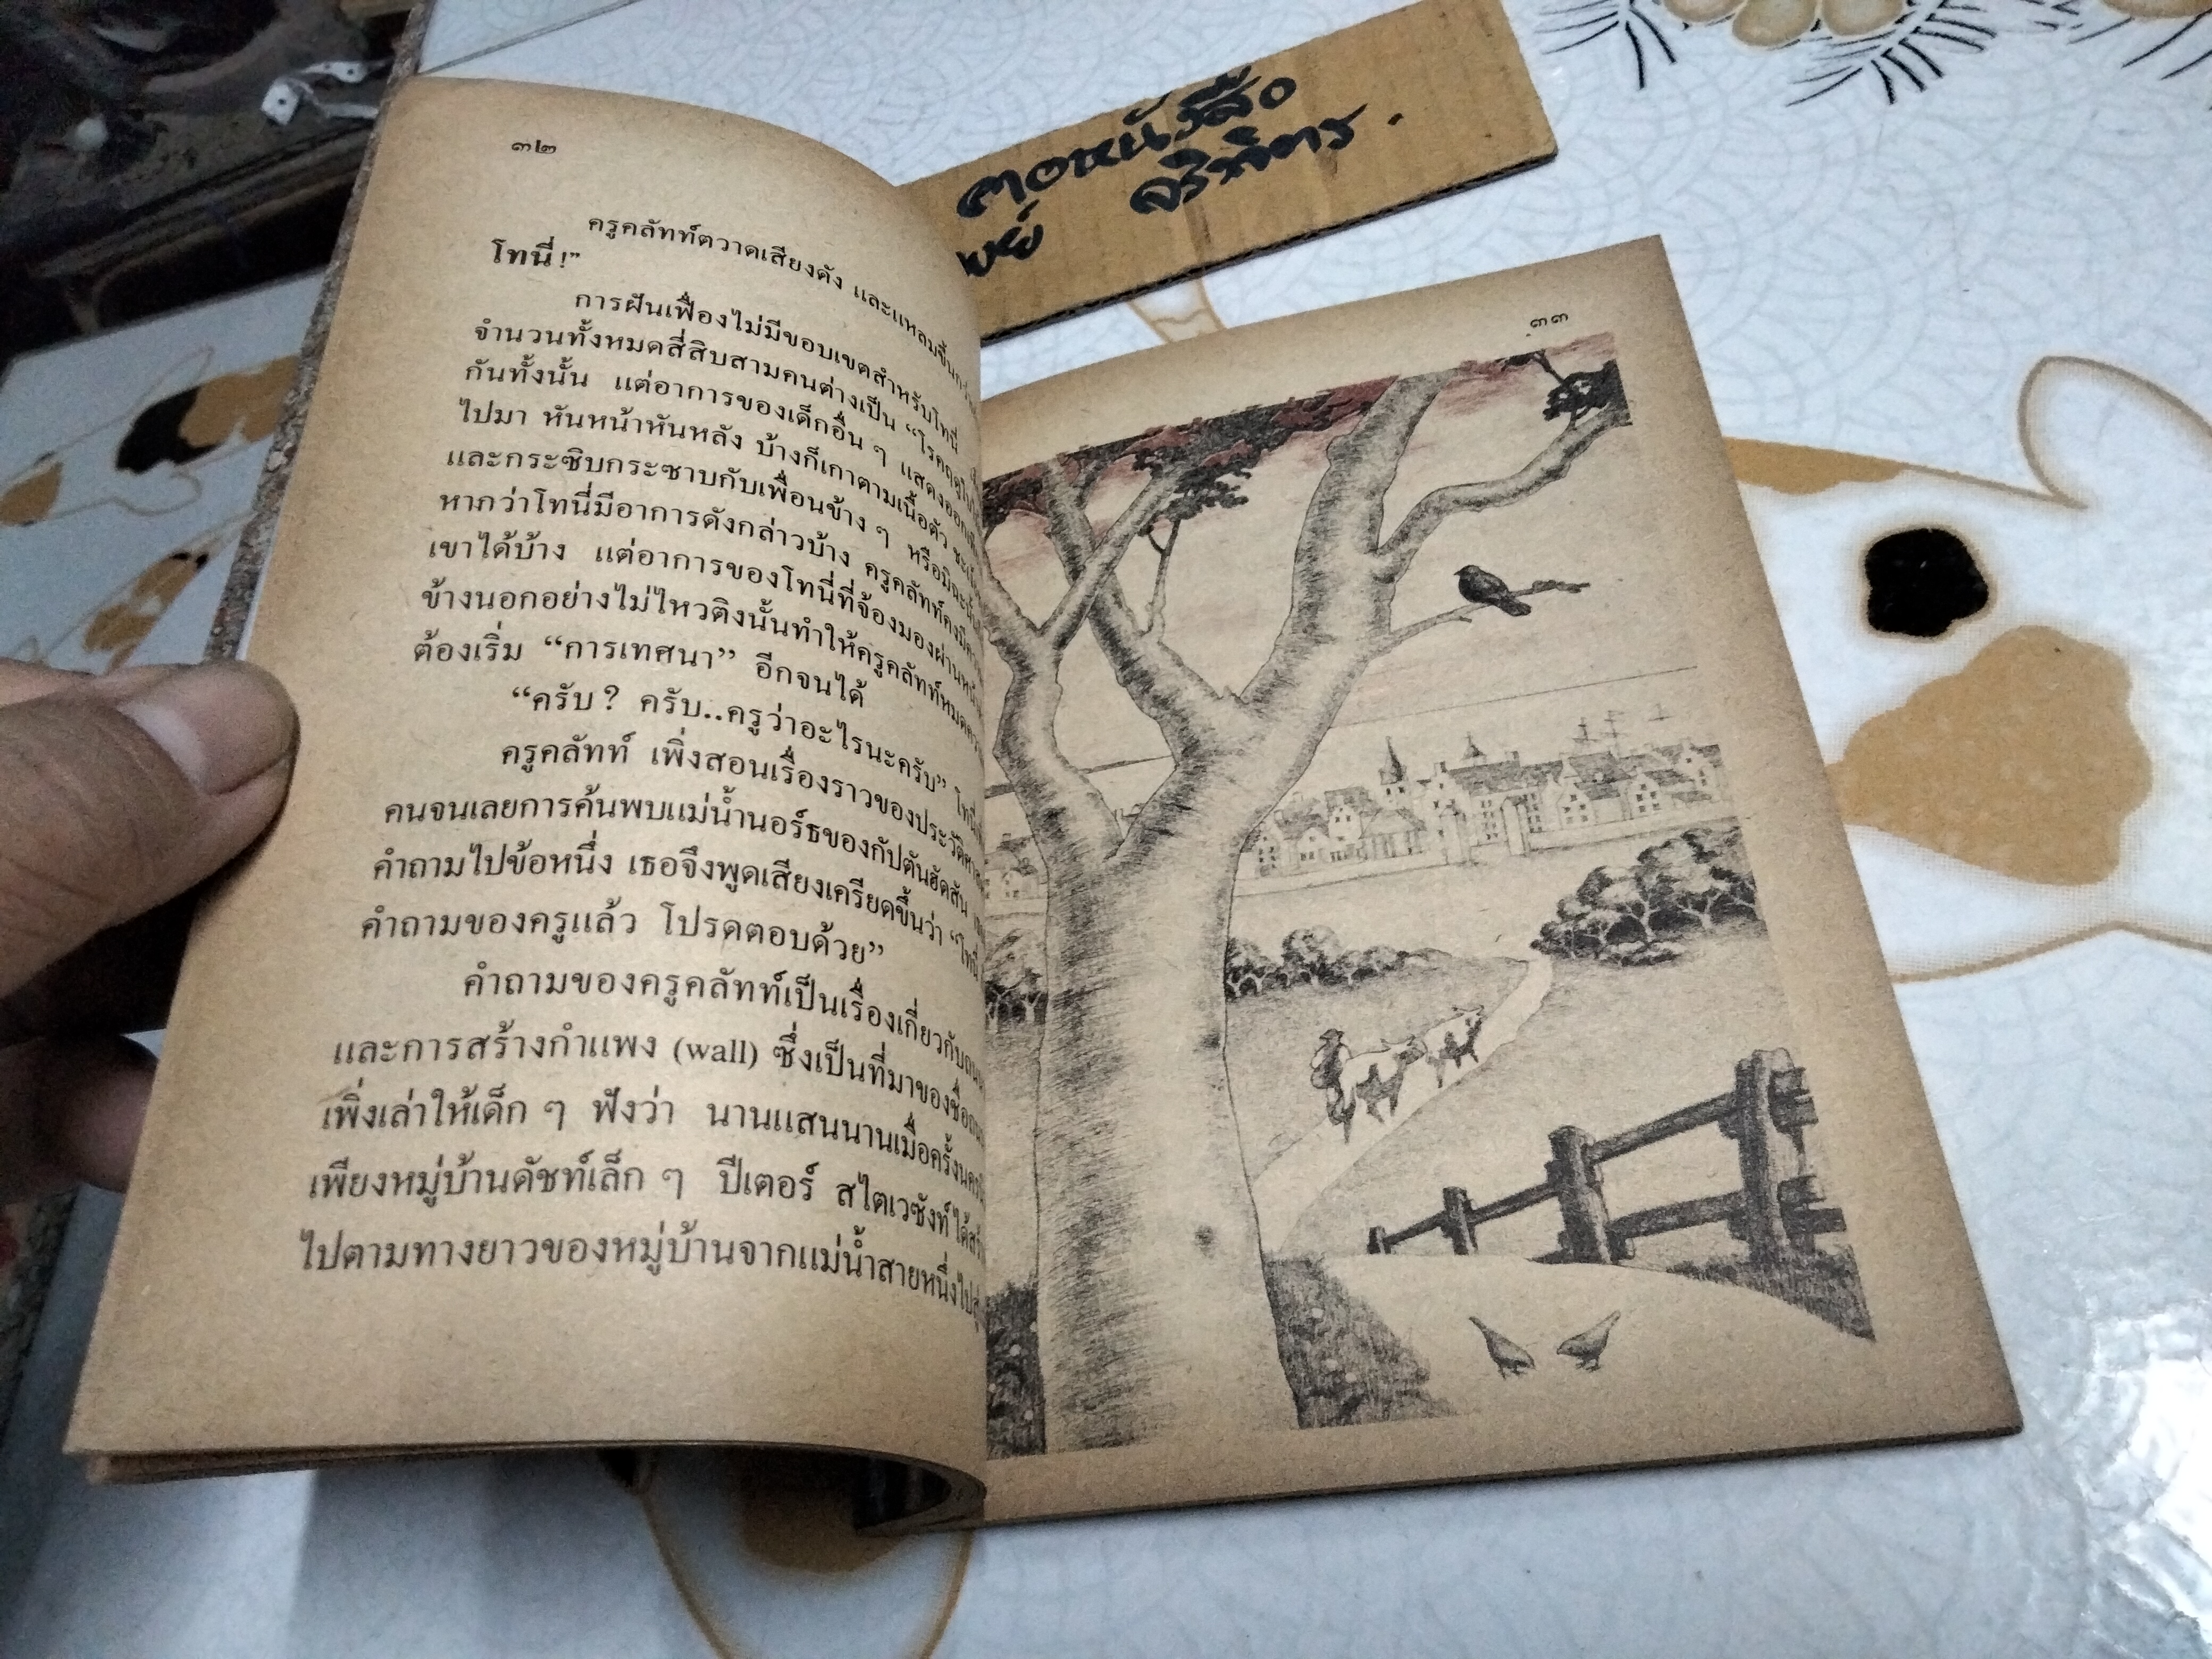 ๓๒
ครูคลัทท์ตวาดเสียงดัง และแหลมขึ้น
โทนี่!”
การฝันเฟื่องไม่มีขอบเขตสำหรับโทนี่
จำนวนทั้งหมดสี่สิบสามคนต่างเป็น “โรคฤดูใบไม้
กันทั้งนั้น แต่อาการของเด็กอื่น ๆ แสดงออก
ไปมา หันหน้าหันหลัง บ้างก็เกาตามเนื้อตัว
และกระซิบกระซาบกับเพื่อนข้าง ๆ หรือมิฉะนั้น
หากว่าโทนี่มีอาการดังกล่าวบ้าง ครูคลัทท์คง
เขาได้บ้าง แต่อาการของโทนี่ที่จ้องมองผ่าน
ข้างนอกอย่างไม่ไหวติงนั้นทำให้ครูคลัทท์หมด
ต้องเริ่ม “การเทศนา” อีกจนได้
“ครับ? ครับ..ครูว่าอะไรนะครับ” โทนี่
ครูคลัทท์ เพิ่งสอนเรื่องราวของประวัติ
คนจนเลยการค้นพบแม่น้ำนอร์ธของกัปตันฮัดสัน
คำถามไปข้อหนึ่ง เธอจึงพูดเสียงเครียดขึ้นว่า “โทนี่
คำถามของครูแล้ว โปรดตอบด้วย”
คำถามของครูคลัทท์เป็นเรื่องเกี่ยวกับ
และการสร้างกำแพง (wall) ซึ่งเป็นที่มาของชื่อ
เพิ่งเล่าให้เด็ก ๆ ฟังว่า นานแสนนานเมื่อครั้ง
เพียงหมู่บ้านดัชท์เล็ก ๆ ปีเตอร์ สไตเวซังท์ได้
ไปตามทางยาวของหมู่บ้านจากแม่น้ำสายหนึ่งไป
๓๓